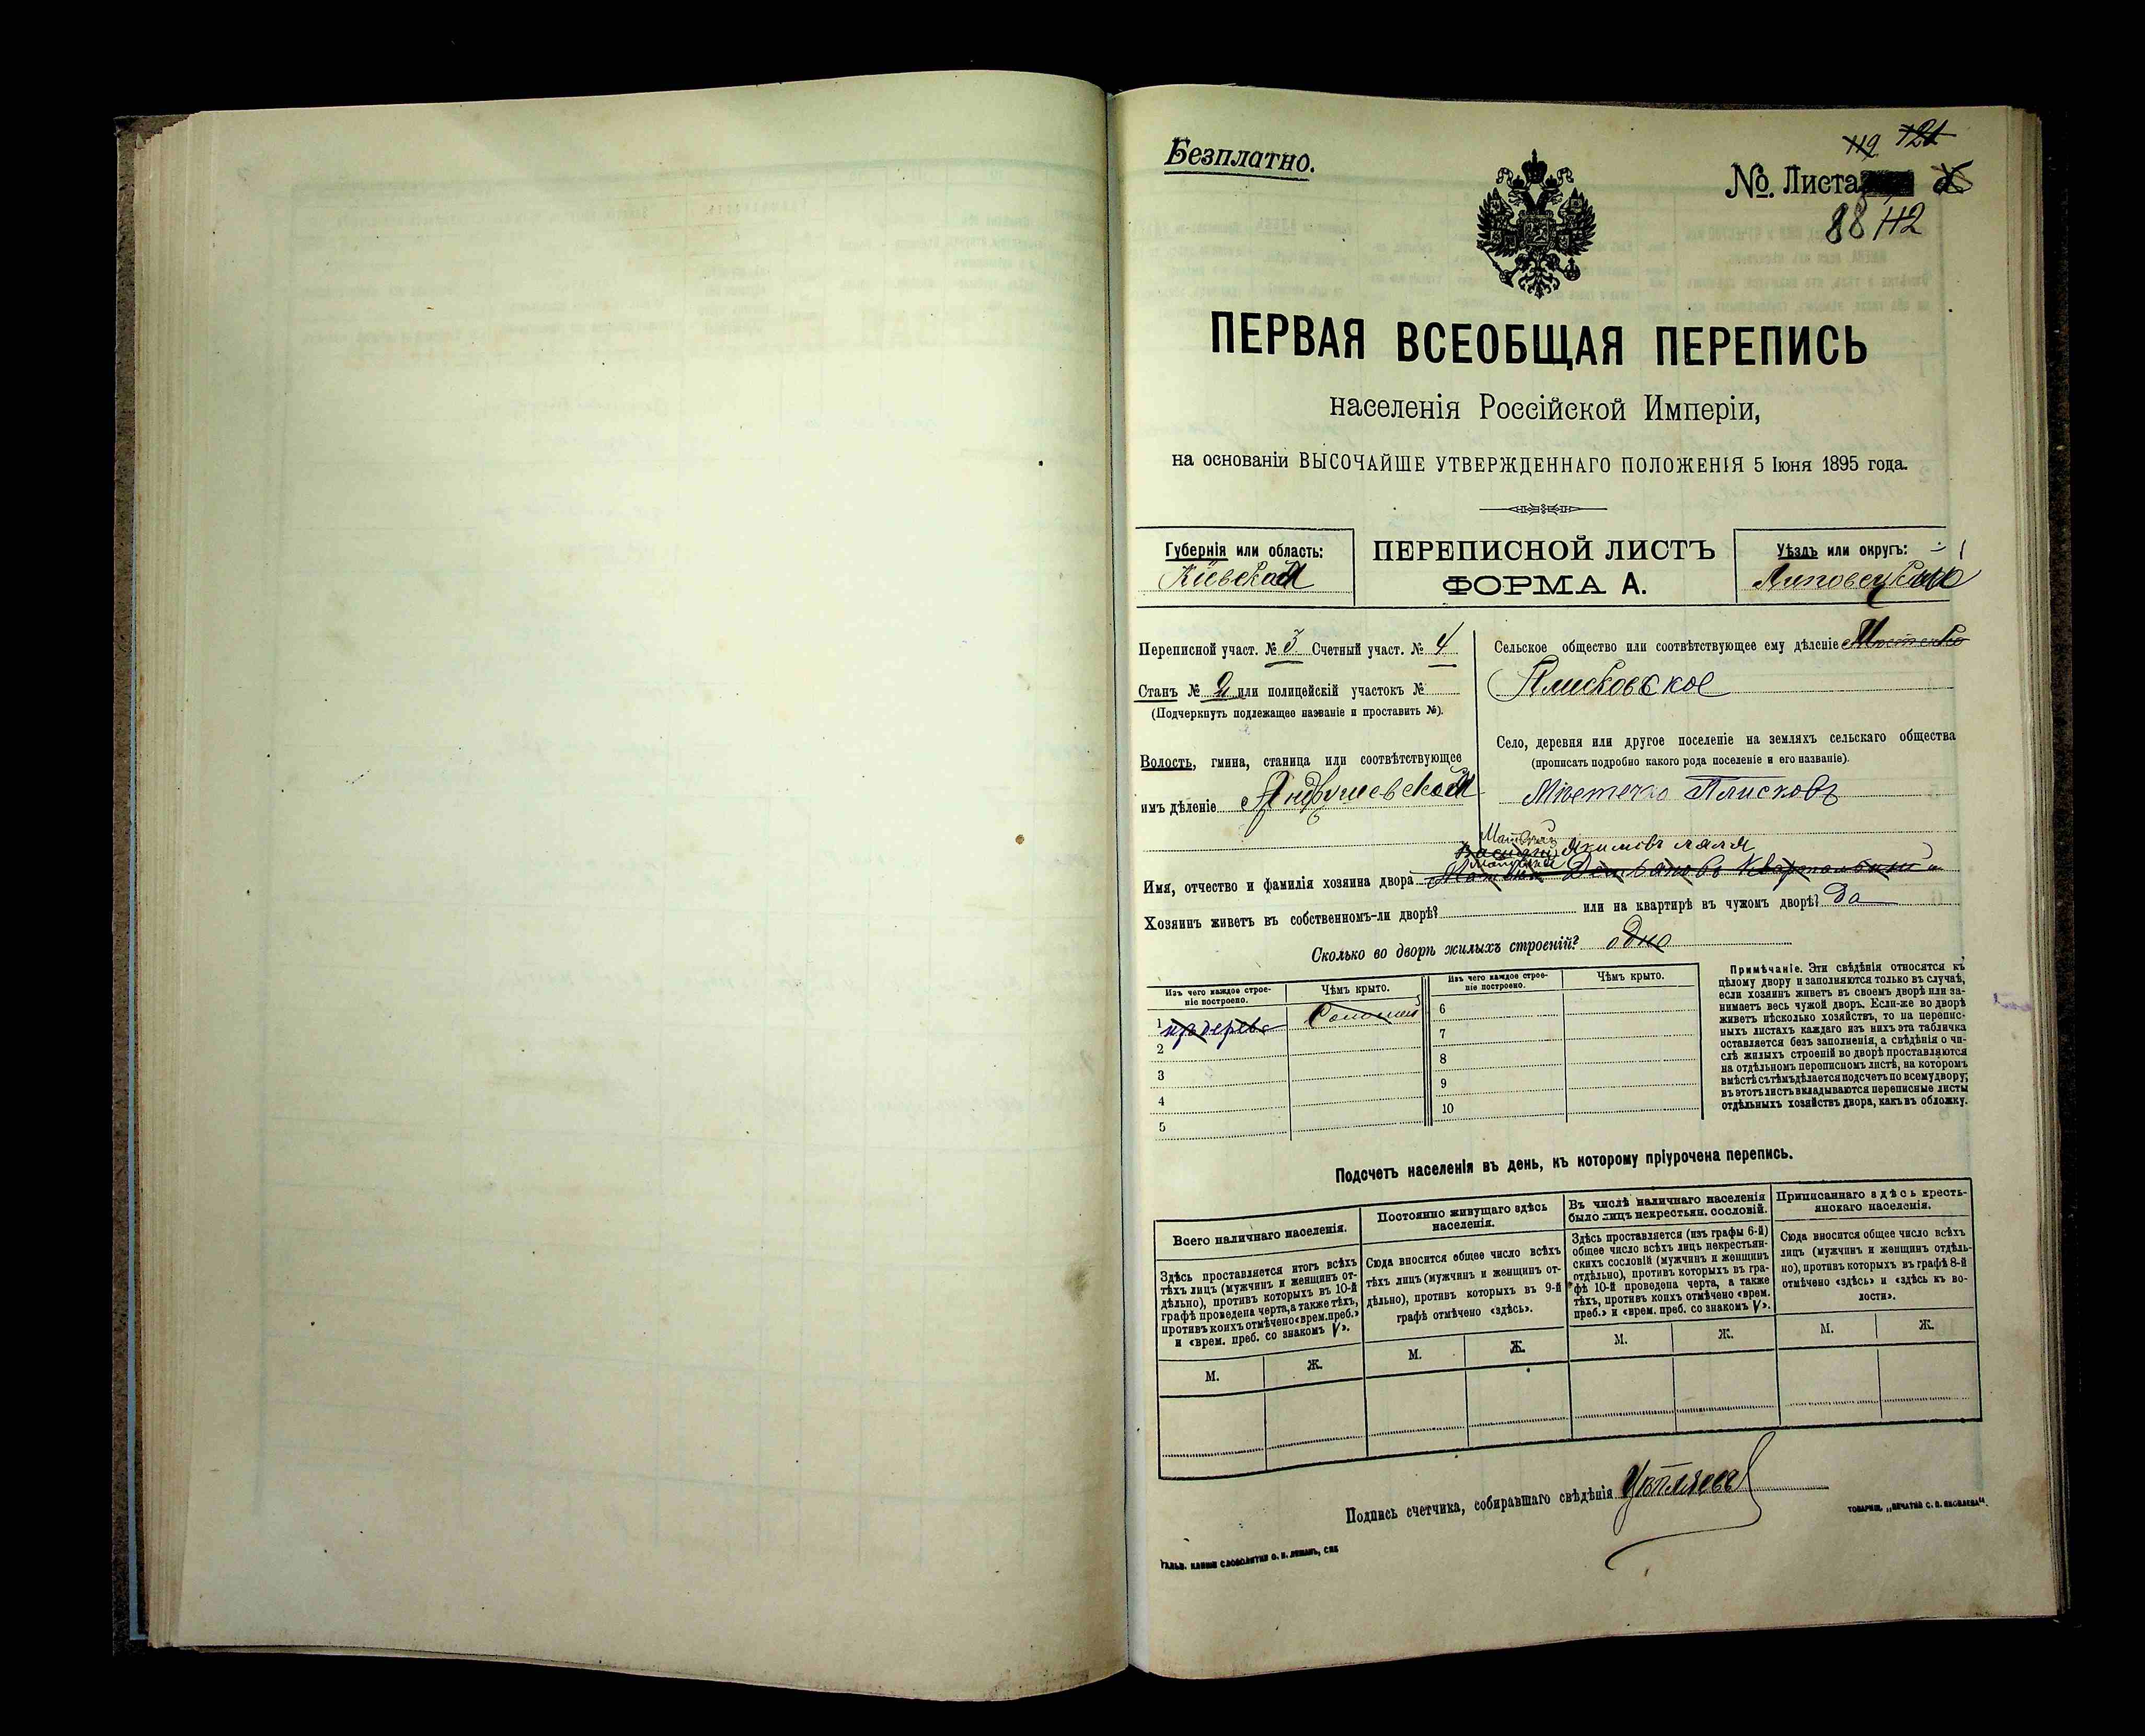 Безплатно.
119 121
№. Листа
88 112
ПЕРВАЯ ВСЕОБЩАЯ ПЕРЕПИСЬ
населенія Россійской Имперіи,
на основаніи ВЫСОЧАЙШЕ УТВЕРЖДЕННАГО ПОЛОЖЕНІЯ 5 Іюня 1895 года.
Губернія или область:
Кіевская
ПЕРЕПИСНОЙ ЛИСТЪ
ФОРМА А.
Уѣздъ или округъ:
Липовецкий
Переписной участ. № 3 Счетный участ. № 4
Станъ № 2 или полицейскій участокъ №
(Подчеркнуть подлежащее названіе и проставить №).
Волость, гмина, станица или соотвѣтствующее
имъ дѣленіе Андрушевская
Сельское общество или соотвѣтствующее ему дѣленіе Местечко
Плисковское
Село, деревня или другое поселеніе на земляхъ сельскаго общества
(прописать подробно какого рода поселеніе и его названіе).
Мѣстечко Плисковъ
Якимовъ
Имя, отчество и фамилія хозяина двора
Хозяинъ живетъ въ собственномъ-ли дворѣ? или на квартирѣ въ чужомъ дворѣ? да
Сколько во дворѣ жилыхъ строеній? одно
Изъ чего каждое строе-
ніе построено.
Чѣмъ крыто.
Изъ чего каждое строе-
ніе построено.
Чѣмъ крыто.
1 изъ дерева Соломой
2
3
4
5
6
7
8
9
10
Примѣчаніе. Эти свѣдѣнія относятся къ
цѣлому двору и заполняются только въ случаѣ,
если хозяинъ живетъ въ своемъ дворѣ или за-
нимаетъ весь чужой дворъ. Если-же во дворѣ
живетъ нѣсколько хозяйствъ, то на перепис-
ныхъ листахъ каждаго изъ нихъ эта табличка
оставляется безъ заполненія, а свѣдѣнія о чи-
слѣ жилыхъ строеній во дворѣ проставляются
на отдѣльномъ переписномъ листѣ, на которомъ
вмѣстѣ съ тѣмъ дѣлается подсчетъ по всему двору;
въ этотъ листъ вкладываются переписные листы
отдѣльныхъ хозяйствъ двора, какъ въ обложку.
Подсчетъ населенія въ день, къ которому пріурочена перепись.
Всего наличнаго населенія.
Здѣсь проставляется итогъ всѣхъ
тѣхъ лицъ (мужчинъ и женщинъ от-
дѣльно), противъ которыхъ въ 10-й
графѣ проведена черта, а также тѣхъ,
противъ коихъ отмѣчено «врем. преб.»
и «врем. преб. со знакомъ V».
М. Ж.
Постоянно живущаго здѣсь
населенія.
Сюда вносится общее число всѣхъ
тѣхъ лицъ (мужчинъ и женщинъ от-
дѣльно), противъ которыхъ въ 9-й
графѣ отмѣчено «здѣсь».
М. Ж.
Въ числѣ наличнаго населенія
было лицъ некрестьян. сословій.
Здѣсь проставляется (изъ графы 6-й)
общее число всѣхъ лицъ некрестьян-
скихъ сословій (мужчинъ и женщинъ
отдѣльно), противъ которыхъ въ гра-
фѣ 10-й проведена черта, а также
тѣхъ, противъ коихъ отмѣчено «врем.
преб.» и «врем. преб. со знакомъ V».
М. Ж.
Приписаннаго здѣсь кресть-
янскаго населенія.
Сюда вносится общее число всѣхъ
лицъ (мужчинъ и женщинъ отдѣль-
но), противъ которыхъ въ графѣ 8-й
отмѣчено «здѣсь» и «здѣсь къ во-
лости».
М. Ж.
Подпись счетчика, собиравшаго свѣдѣнія
ТОВАРИЩ. „ПЕЧАТНЯ С. П. ЯКОВЛЕВА“.